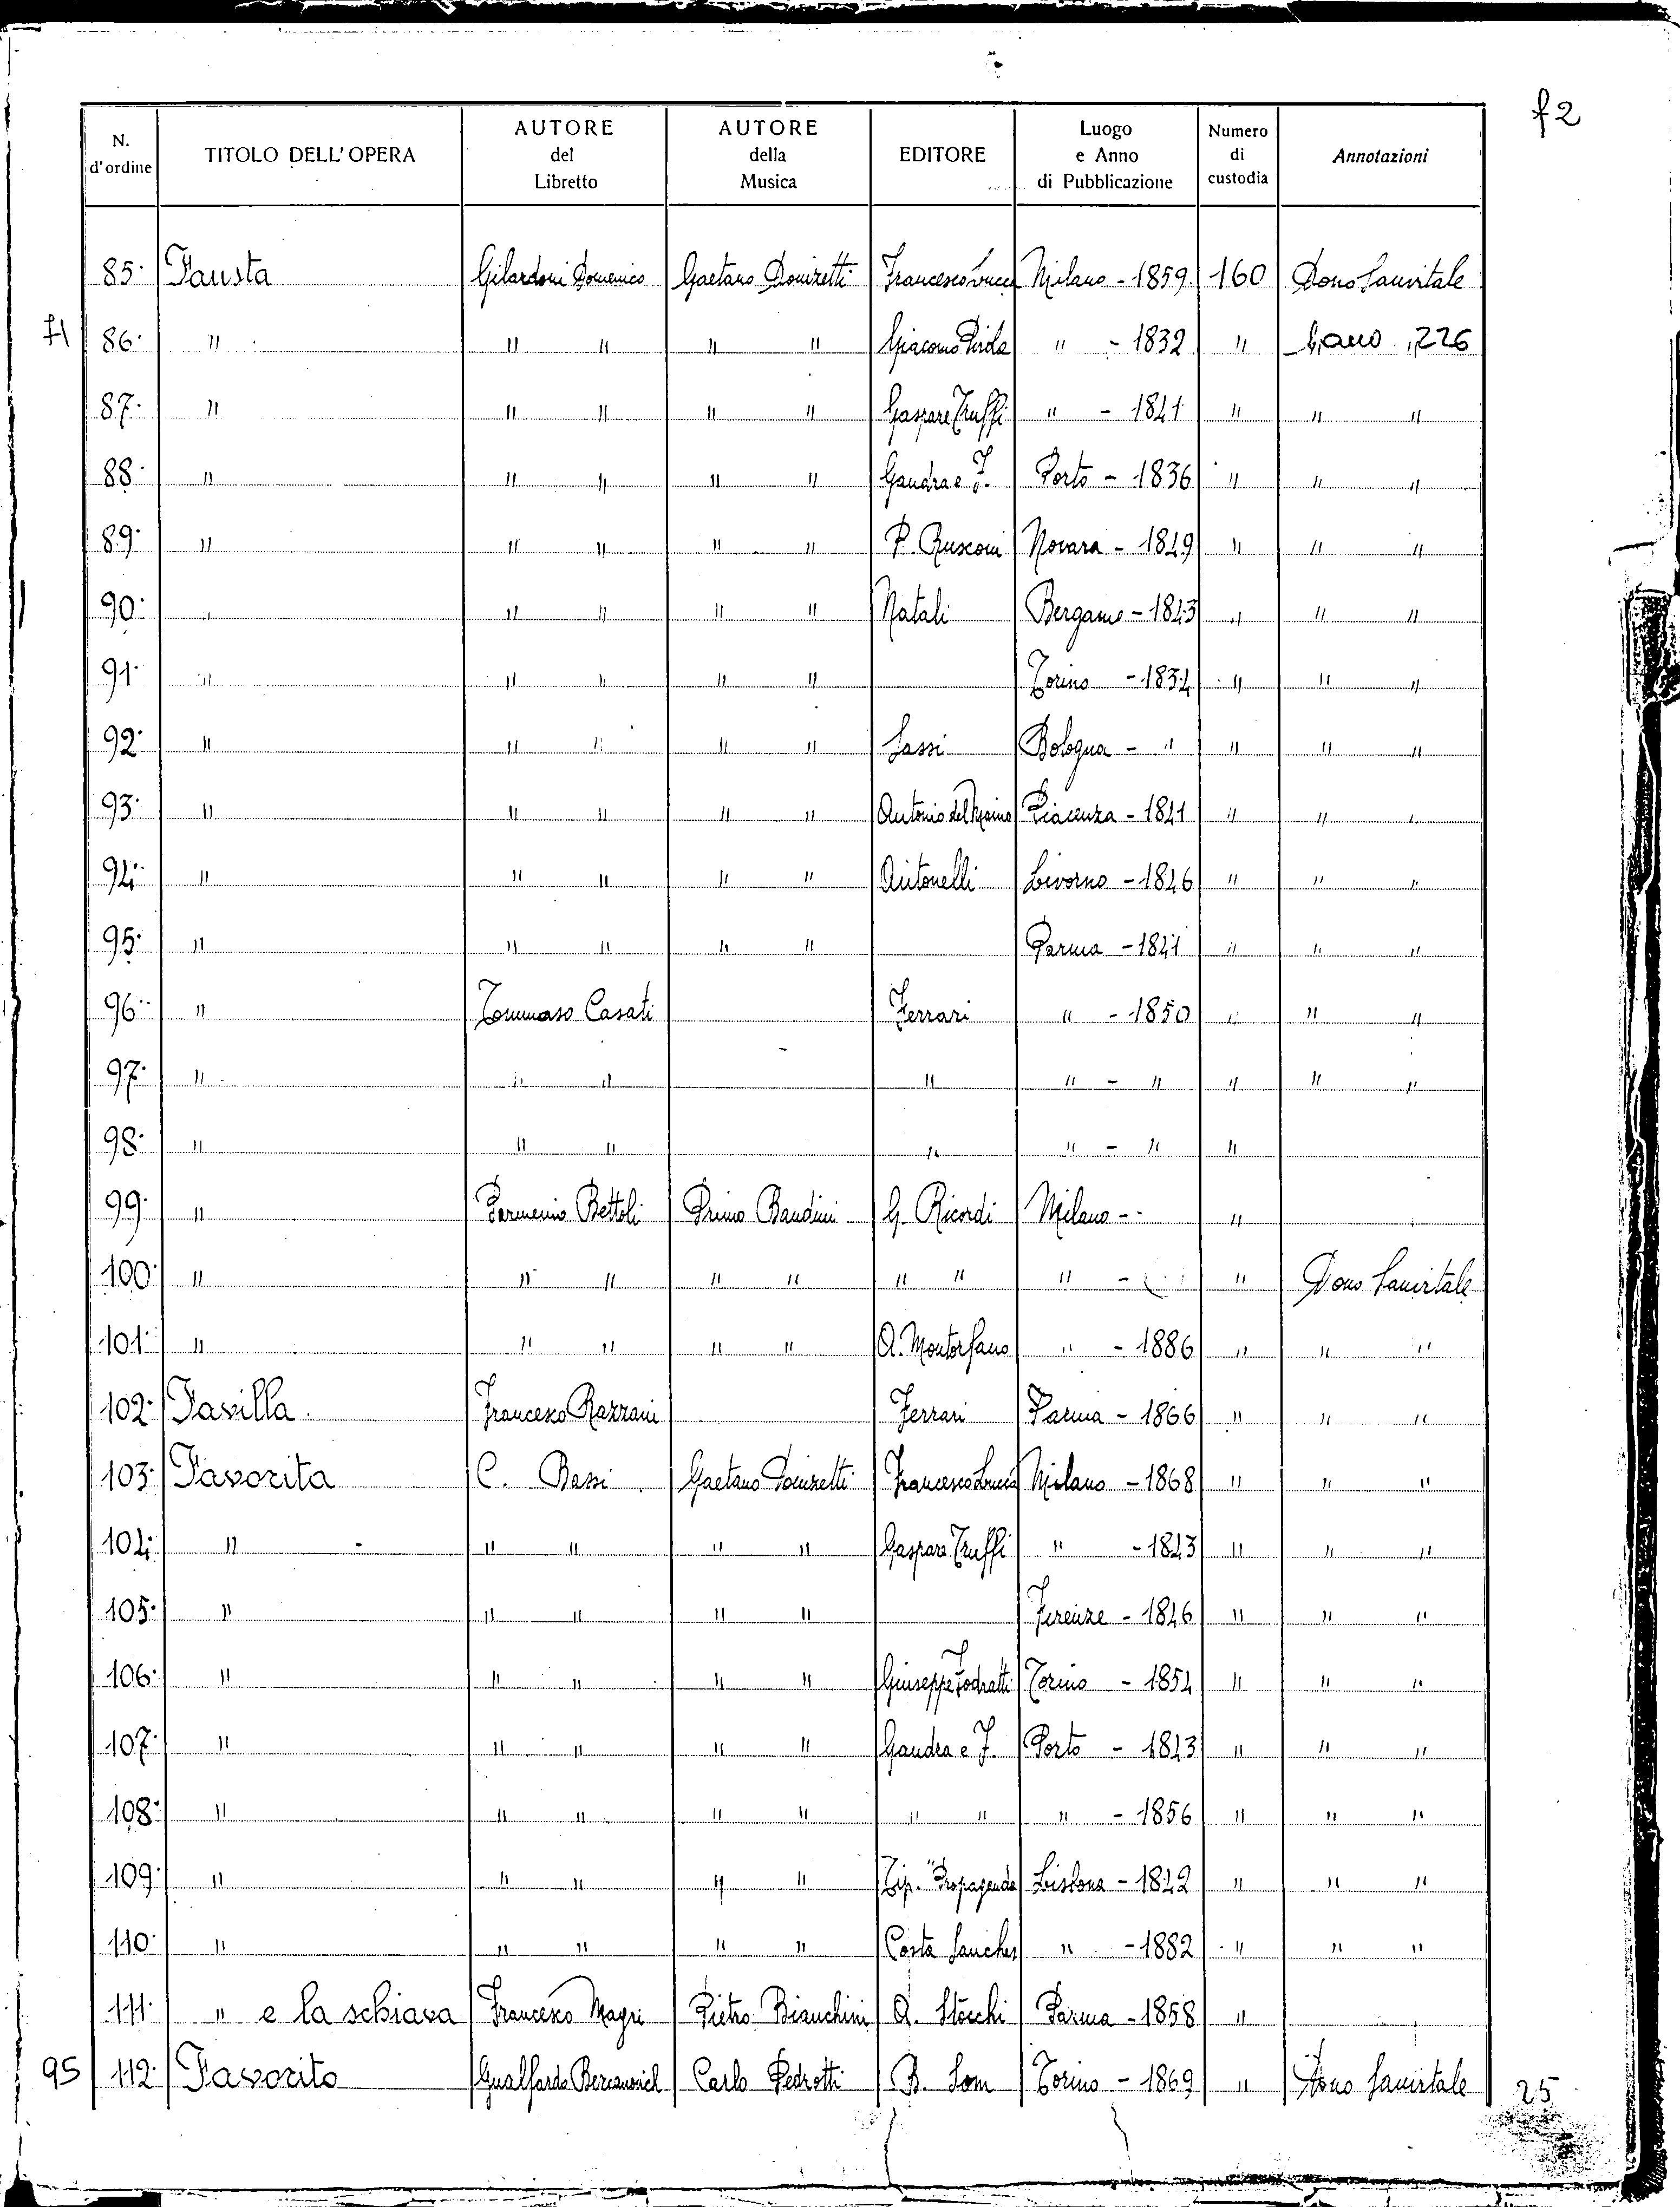 f2
N. d'ordine TITOLO DELL'OPERA AUTORE del Libretto AUTORE della Musica EDITORE Luogo e Anno di Pubblicazione Numero di custodia Annotazioni
85. Fausta Gilardoni Domenico Gaetano Donizetti Francesco Lucca Milano - 1859 160 Dono Sanvitale
86. " " " " " Giacomo Pirola " - 1832 " 226
87. " " " " " Gaspare Truffi " - 1841 " " "
88. " " " " " Gandra e F. Porto - 1836 " " "
89. " " " " " P. Rusconi Novara - 1849 " " "
90. " " " " " Natali Bergamo - 1843 " " "
91. " " " " " Torino - 1834 " " "
92. " " " " " Sassi Bologna - " " " "
93. " " " " " Antonio del Maino Piacenza - 1841 " " "
94. " " " " " Antonelli Livorno - 1846 " " "
95. " " " " " Parma - 1841 " " "
96. " Tommaso Casati Ferrari " - 1850 " " "
97. " " " " " - " " " "
98. " " " " " - " "
99. " Parmenio Bettoli Primo Bandini G. Ricordi Milano - "
100. " " " " " " " " - " Dono Sanvitale
101. " " " " " A. Montorfano " - 1886 " " "
102. Favilla Francesco Razzani Ferrari Parma - 1866 " " "
103. Favorita C. Bassi Gaetano Donizetti Francesco Lucca Milano - 1868 " " "
104. " " " " " Gaspare Truffi " - 1843 " " "
105. " " " " " Firenze - 1846 " " "
106. " " " " " Giuseppe Fodratti Torino - 1854 " " "
107. " " " " " Gandra e F. Porto - 1843 " " "
108. " " " " " " " " - 1856 " " "
109. " " " " " Tip. "Propaganda Lisbona - 1842 " " "
110. " " " " " Costa Sanches " - 1882 " " "
111. " e la schiava Francesco Magri Pietro Bianchini A. Stocchi Parma - 1858 "
95 112. Favorito Gualfardo Bercanovich Carlo Pedrotti B. Som Torino - 1869 " Dono Sanvitale 25